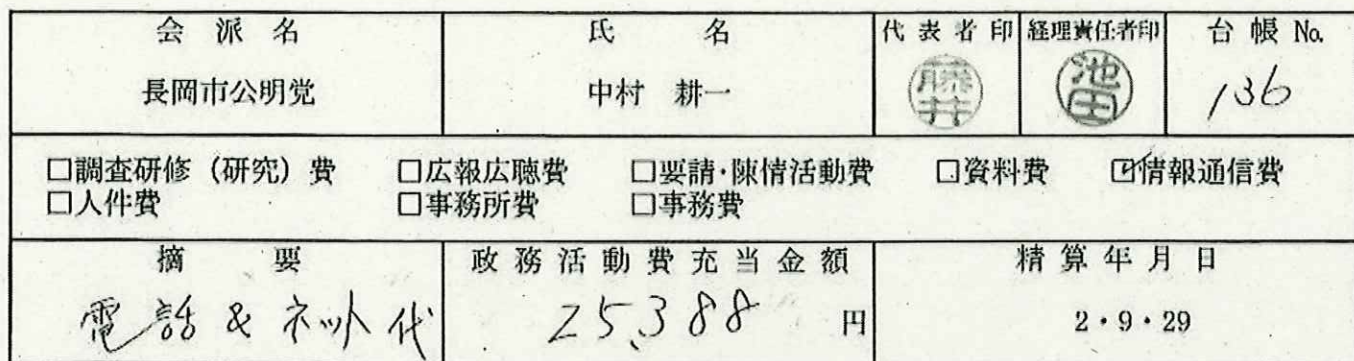 会派名 氏名 代表者印 経理責任者印 台帳No.
長岡市公明党 中村 耕一 藤井 池田 136
□調査研修（研究）費 □広報広聴費 □要請・陳情活動費 □資料費 ☑情報通信費
□人件費 □事務所費 □事務費
摘要 政務活動費充当金額 精算年月日
電話&ネット代 25,388 円 2・9・29